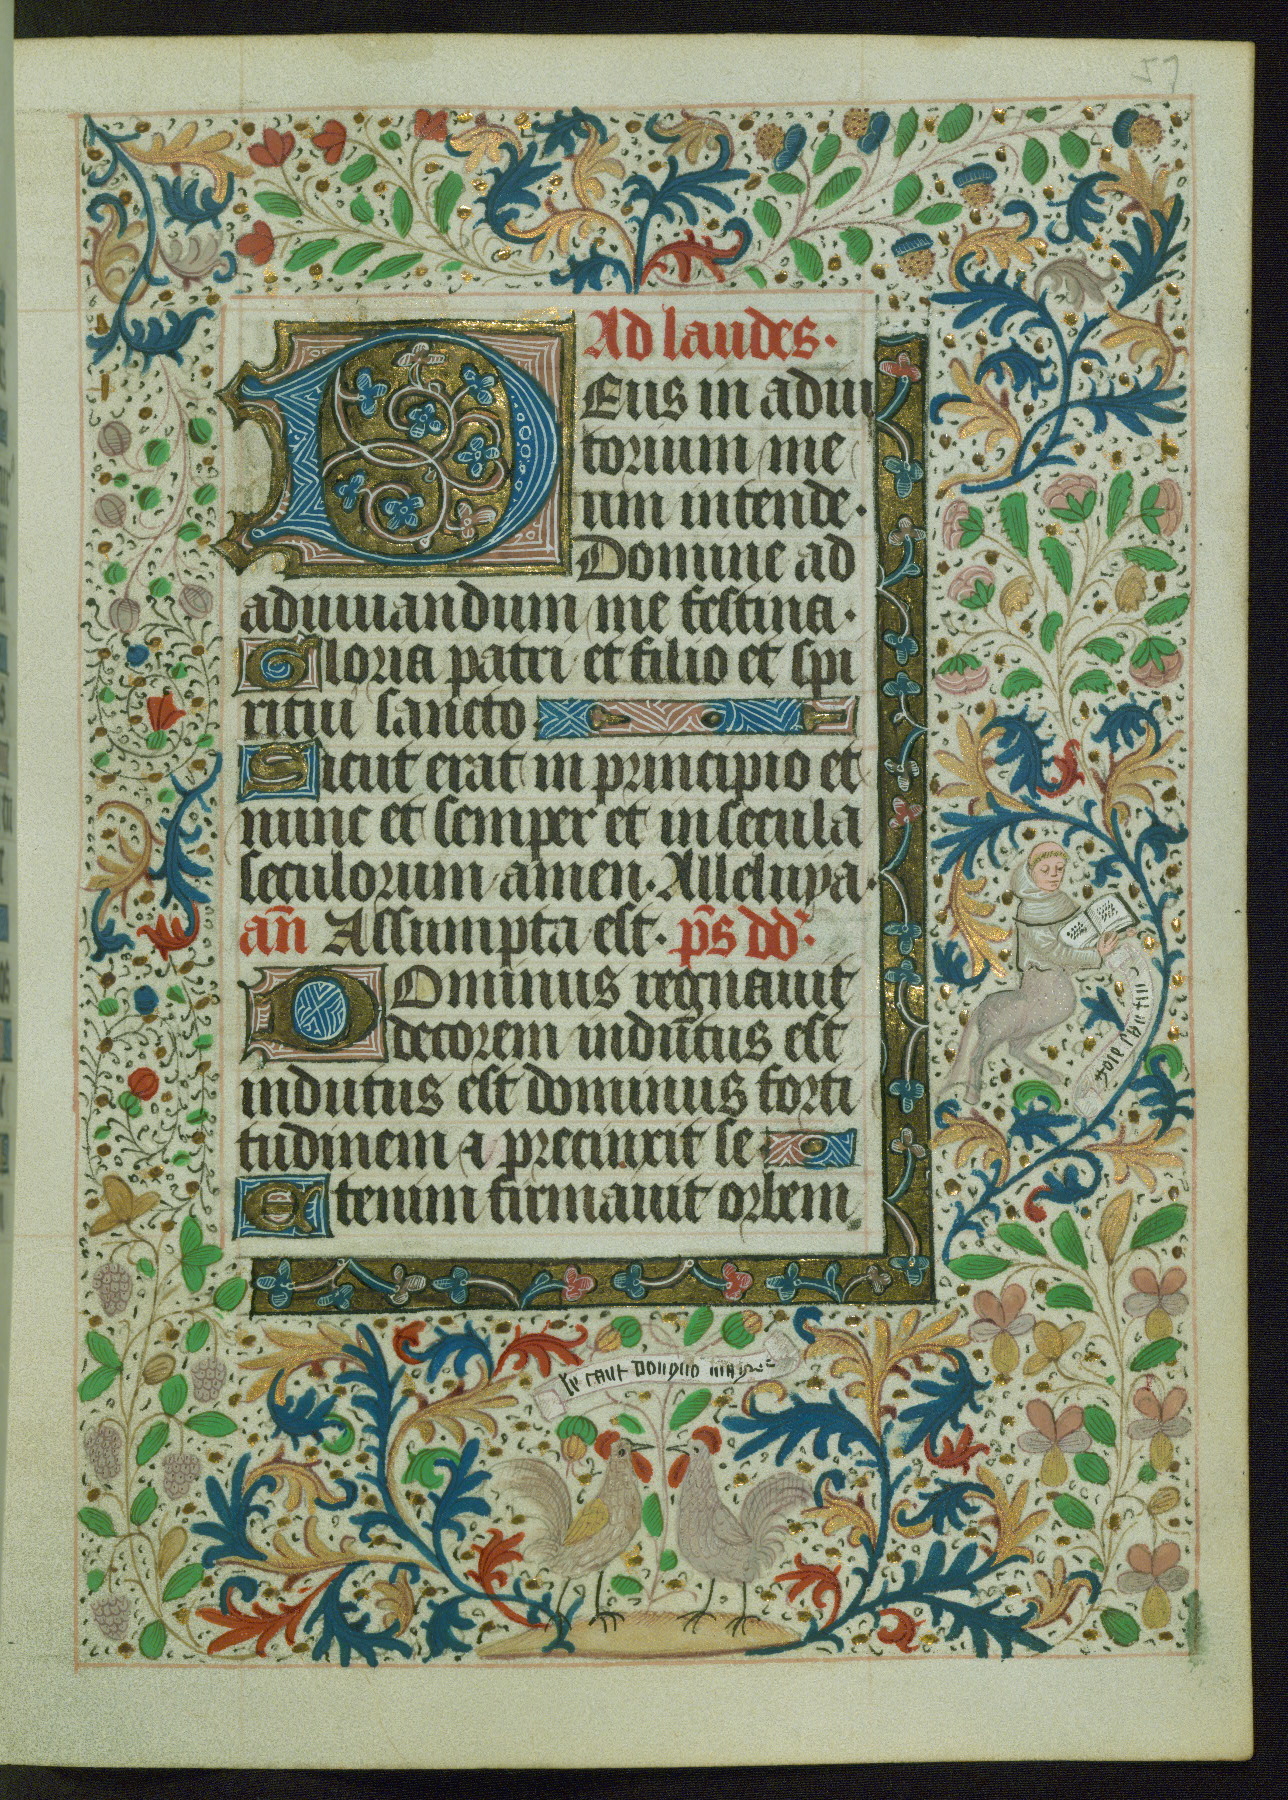 57
Ad laudes.
Deus in adiu
torium me
um intende.
Domine ad
adiuuandum me festina.
Gloria patri et filio et spi
ritui sancto
Sicut erat in principio et
nunc et semper et in secula
seculorum amen. Alleluya.
an̄ Assumpta est. ps̄ dd̄.
Dominus regnauit
decorem indutus est
indutus est dominus forti
tudinem ⁊ precinxit se
Etenim firmauit orbem